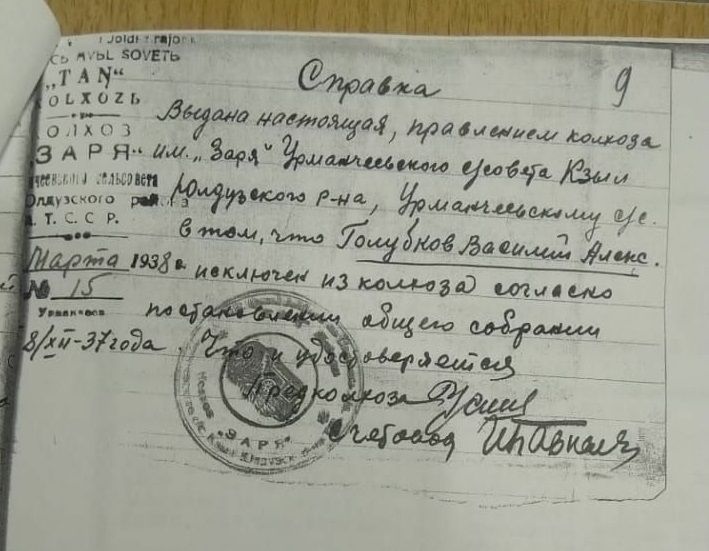 Joldi z rajon
AVЬL SOVETЬ
„TAꞐ“
KOLXOZЬ
КОЛХОЗ
„ЗАРЯ“
сельсовета
Юлдузского района
А. Т. С. С. Р.
Марта 1938 г.
№ 15
9
Справка
Выдана настоящая, правлением колхоза
им. „Заря" Урманчеевского с/совета Кзыл
Юлдузского р-на, Урманчеевскому с/с.
в том, что Голубнов Василий Алекс.
исключен из колхоза согласно
постановлении общего собрании
8/XII-37 года. Что и удостоверяется
Предколхоза
Счетовод
Колхоз
„ЗАРЯ"